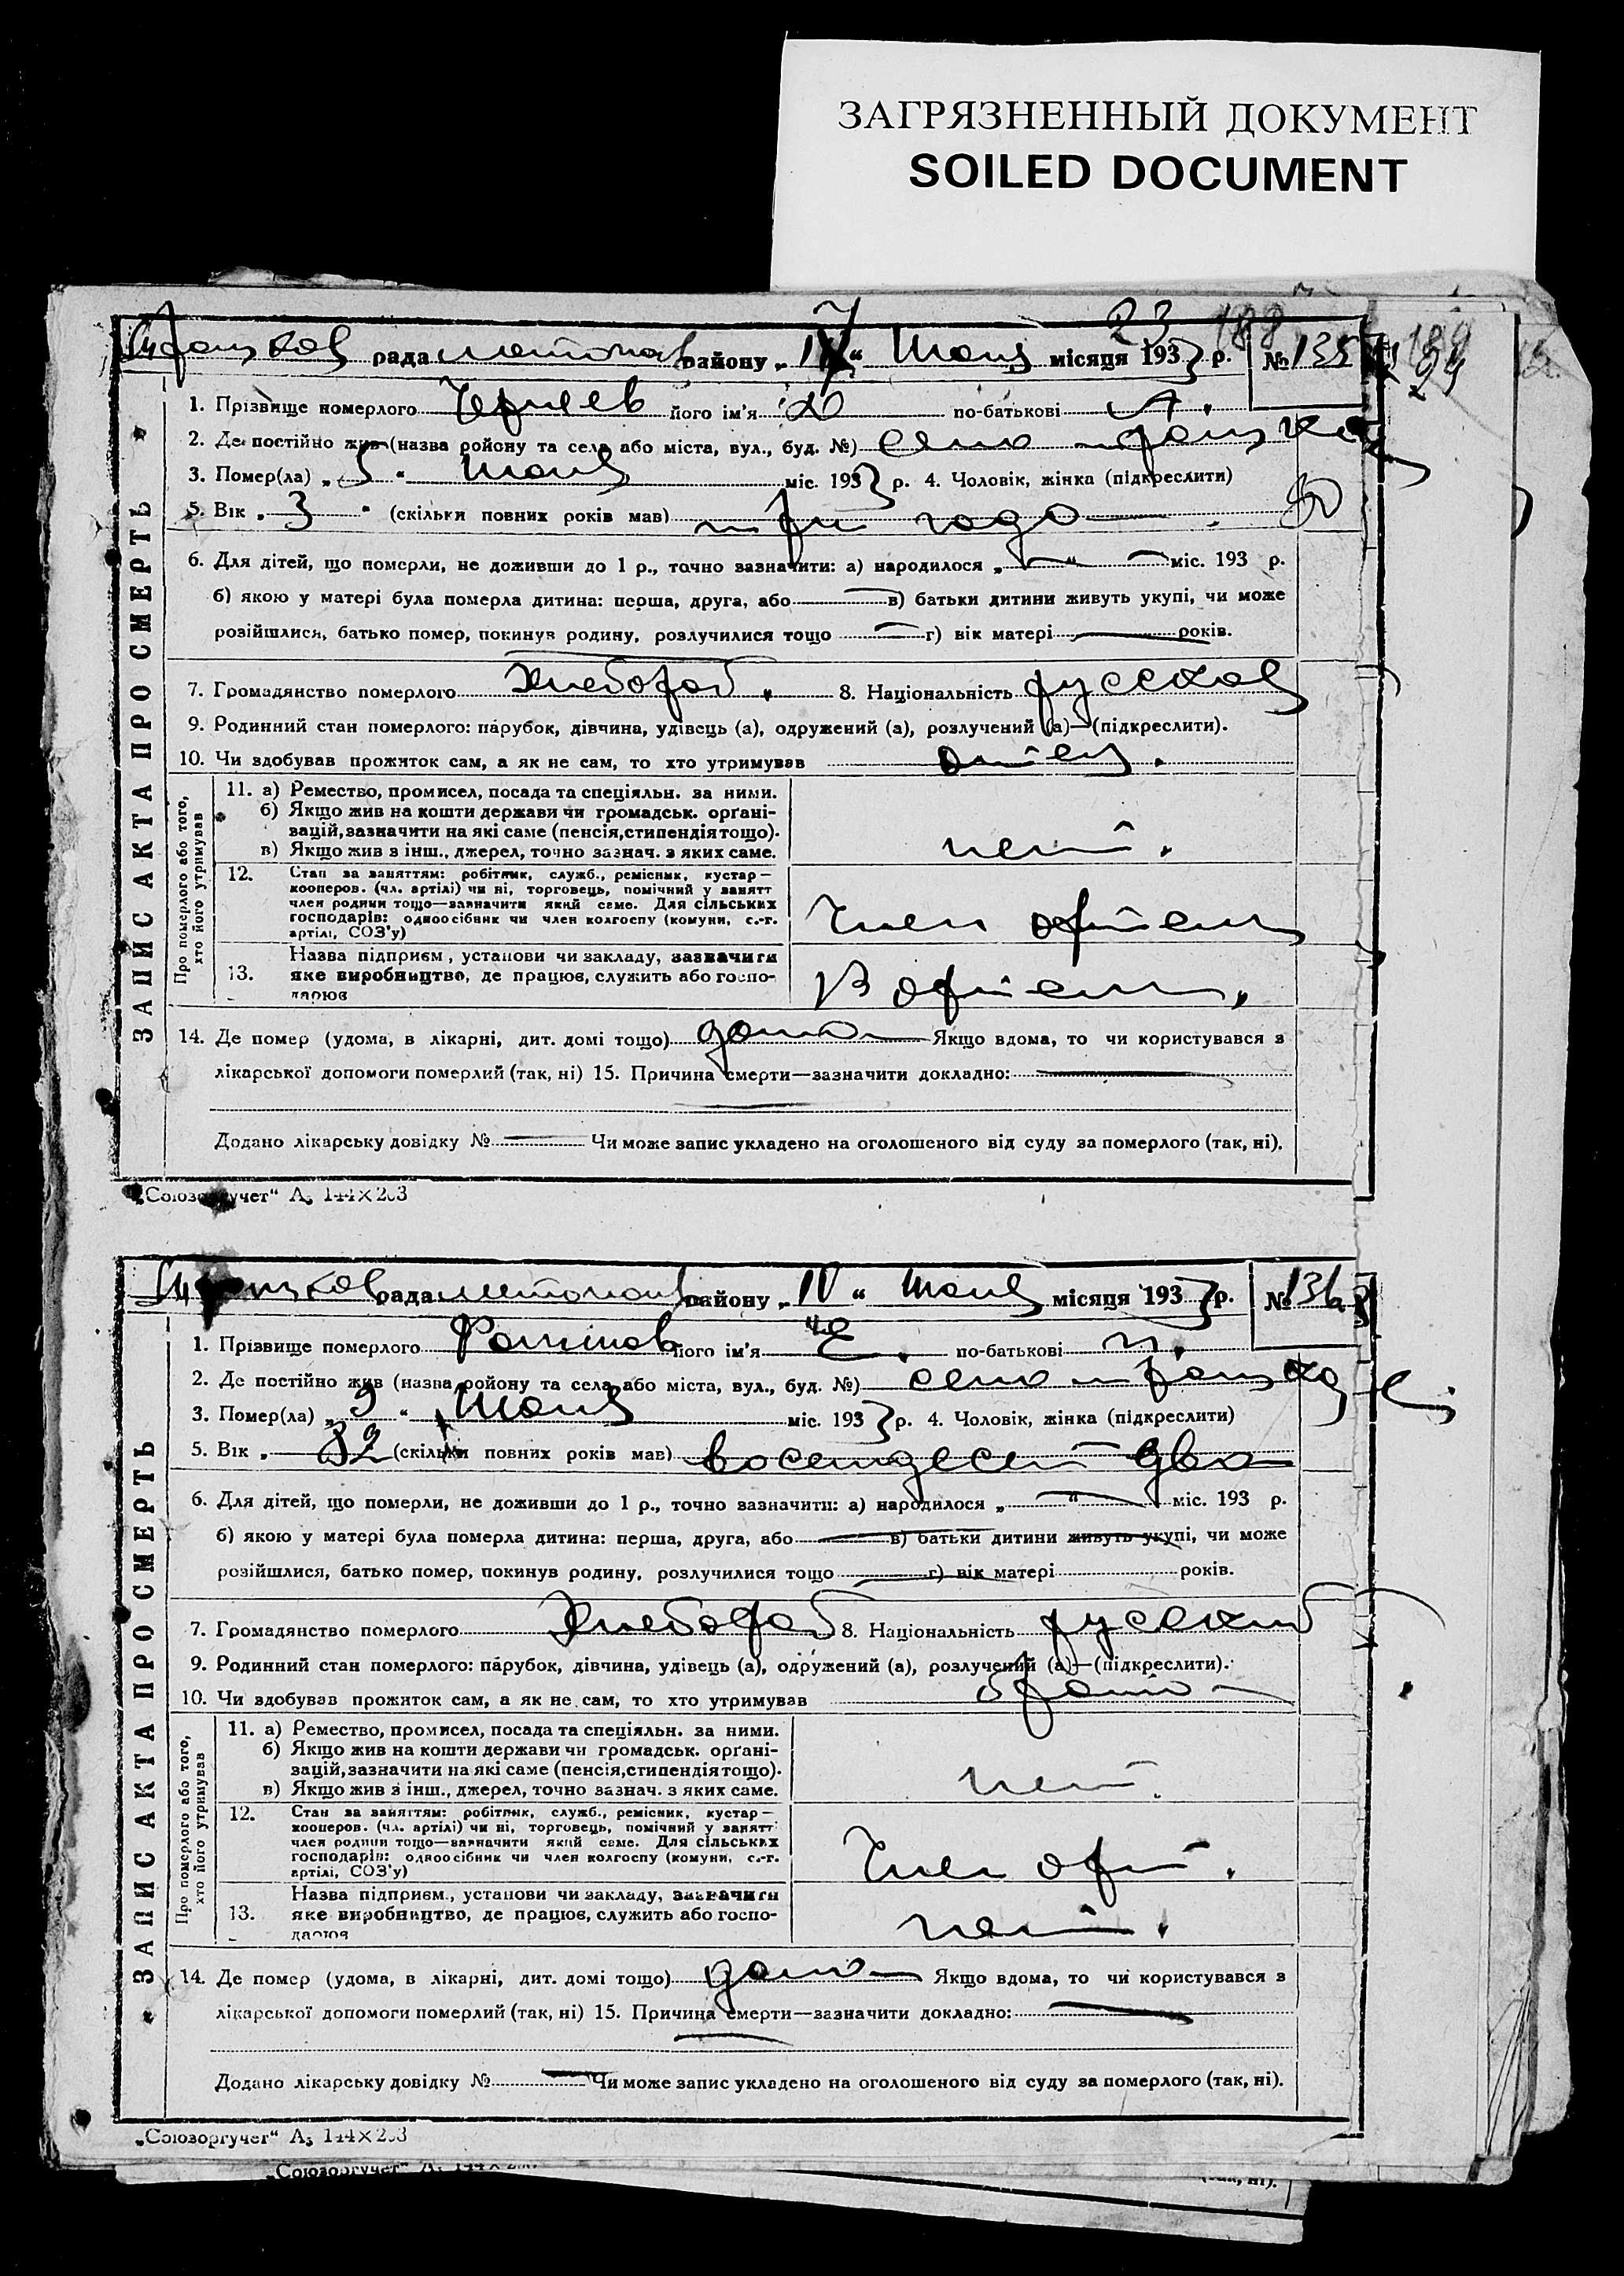 ЗАГРЯЗНЕННЫЙ ДОКУМЕНТ
SOILED DOCUMENT
рада району „ “ місяця 1933 р. № 135
1. Прізвище померлого його ім'я по-батькові А.
2. Де постійно жив (назва ройону та села або міста, вул., буд. №) село
3. Помер(ла) „ 5 “ міс. 1933 р. 4. Чоловік, жінка (підкреслити)
5. Вік „ 3 “ (скільки повних років мав) три года
6. Для дітей, що померли, не доживши до 1 р., точно зазначити: а) народилося „ “ міс. 193 р.
б) якою у матері була померла дитина: перша, друга, або в) батьки дитини живуть укупі, чи може
розійшлися, батько помер, покинув родину, розлучилися тощо г) вік матері років.
7. Громадянство померлого хлебороб. 8. Національність русская
9. Родинний стан померлого: парубок, дівчина, удівець (а), одружений (а), розлучений (а)—(підкреслити).
10. Чи здобував прожиток сам, а як не сам, то хто утримував отец.
ЗАПИС АКТА ПРО СМЕРТЬ
Про померлого або того, хто його утримував
11. а) Ремество, промисел, посада та спеціяльн. за ними.
б) Якщо жив на кошти держави чи громадськ. органі-
зацій, зазначити на які саме (пенсія, стипендія тощо).
в) Якщо жив з інш., джерел, точно зазнач. з яких саме.
нет.
12. Стан за заняттям: робітник, служб., ремісник, кустар—
кооперов. (чл. артілі) чи ні, торговець, помічний у занятт
член родини тощо—зазначити який саме. Для сільських
господарів: одноосібник чи член колгоспу (комуни, с.-г.
артілі, СОЗ'у)
Член артели
13. Назва підприєм., установи чи закладу, зазначити
яке виробництво, де працює, служить або госпо-
дарює
В артели.
14. Де помер (удома, в лікарні, дит. домі тощо) дома Якщо вдома, то чи користувався з
лікарської допомоги померлий (так, ні) 15. Причина смерти—зазначити докладно:
Додано лікарську довідку № Чи може запис укладено на оголошеного від суду за померлого (так, ні).
„Союзоргучет“ А₅ 144×203
рада району „IV“ місяця 1933 р. № 136
1. Прізвище померлого його ім'я Е. по-батькові
2. Де постійно жив (назва ройону та села або міста, вул., буд. №) село
3. Помер(ла) „ 9 “ міс. 1933 р. 4. Чоловік, жінка (підкреслити)
5. Вік „ 82 (скільки повних років мав) восемдесет два
6. Для дітей, що померли, не доживши до 1 р., точно зазначити: а) народилося „ “ міс. 193 р.
б) якою у матері була померла дитина: перша, друга, або в) батьки дитини живуть укупі, чи може
розійшлися, батько помер, покинув родину, розлучилися тощо г) вік матері років.
7. Громадянство померлого хлебороб 8. Національність русский
9. Родинний стан померлого: парубок, дівчина, удівець (а), одружений (а), розлучений (а)—(підкреслити).
10. Чи здобував прожиток сам, а як не сам, то хто утримував
ЗАПИС АКТА ПРО СМЕРТЬ
Про померлого або того, хто його утримував
11. а) Ремество, промисел, посада та спеціяльн. за ними.
б) Якщо жив на кошти держави чи громадськ. органі-
зацій, зазначити на які саме (пенсія, стипендія тощо).
в) Якщо жив з інш., джерел, точно зазнач. з яких саме.
нет.
12. Стан за заняттям: робітник, служб., ремісник, кустар—
кооперов. (чл. артілі) чи ні, торговець, помічний у занятт
член родини тощо—зазначити який саме. Для сільських
господарів: одноосібник чи член колгоспу (комуни, с.-г.
артілі, СОЗ'у)
Член арт.
13. Назва підприєм., установи чи закладу, зазначити
яке виробництво, де працює, служить або госпо-
дарює
нет.
14. Де помер (удома, в лікарні, дит. домі тощо) дома Якщо вдома, то чи користувався з
лікарської допомоги померлий (так, ні) 15. Причина смерти—зазначити докладно:
Додано лікарську довідку № Чи може запис укладено на оголошеного від суду за померлого (так, ні).
„Союзоргучет“ А₅ 144×203
„Союзоргучет“
(так, ні).